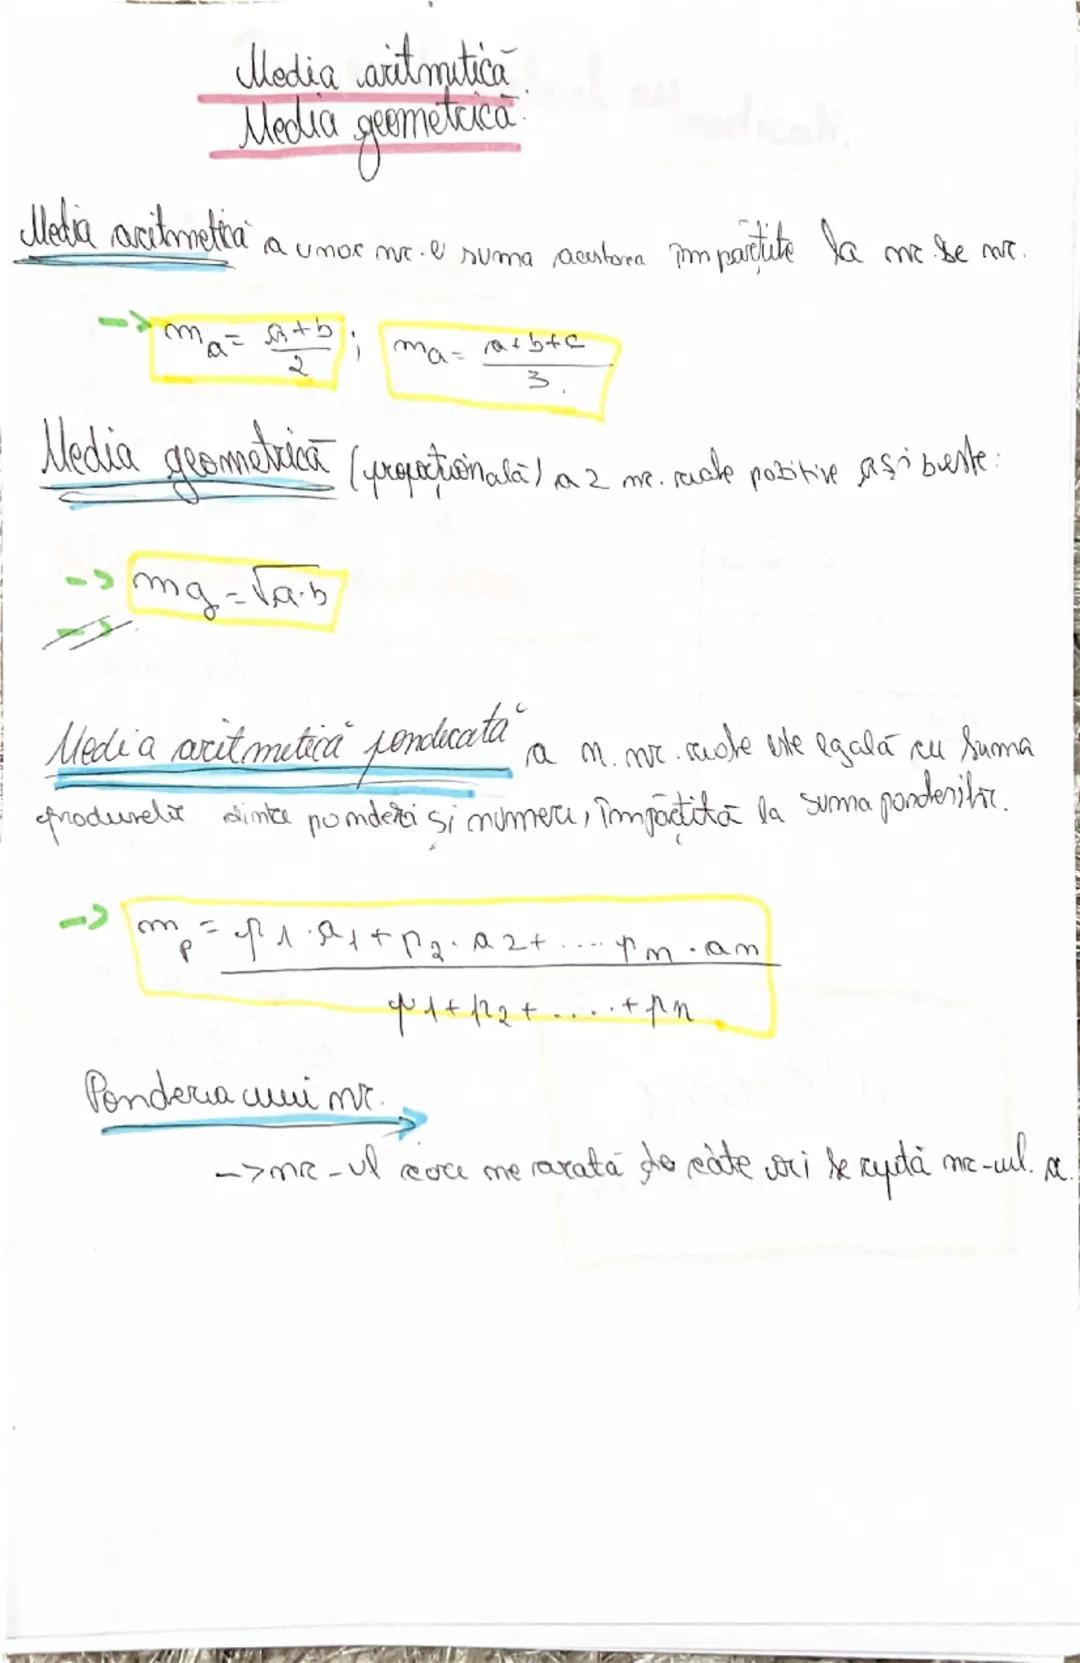 Media aritmetică.
Media geometrică.
Media aritmetică a unor nr. e suma acestora împărțite la nr. de nr.
-> ma = a+b / 2 ; ma = a+b+c / 3.
Media geometrică (proporțională) a 2 nr. reale pozitive a și b este:
-> mg = √a·b
->
Media aritmetică ponderată a n. nr. reale este egală cu suma
produselor dintre ponderi și numere, împărțită la suma ponderilor.
-> mp = p1·a1 + p2·a2 + .... pn·an
p1 + p2 + .... + pn
Ponderea unui nr.
-> nr-ul care ne arată de câte ori se repetă nr-ul. a.